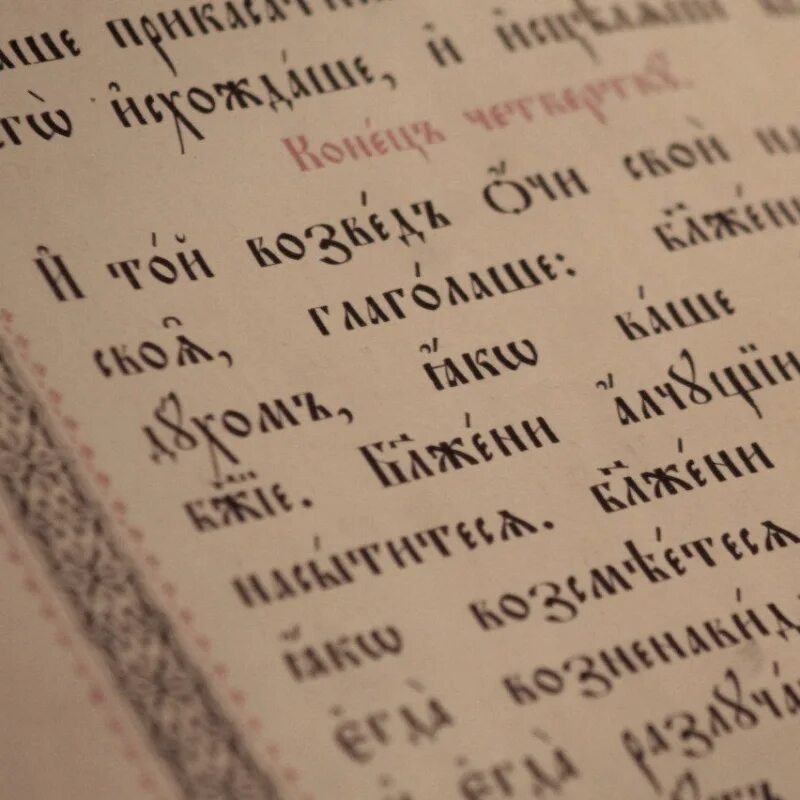 аше прикаса
егѡ̀ и҆схожда́ше, и҆ и҆сцѣлѧ́ше
Коне́цъ четверткꙋ̀.
И҆ то́й возве́дъ ѻ҆́чи своѝ на
своѧ̑, глаго́лаше: бл҃же́ни
дꙋ́хомъ, ꙗ҆́кѡ ва́ше
бж҃їе. Бл҃же́ни а҆́лчꙋщїи
насы́титесѧ. Бл҃же́ни
ꙗ҆́кѡ возсмѣе́тесѧ
є҆гда̀ возненави́д
и҆ є҆гда̀ разлꙋча́